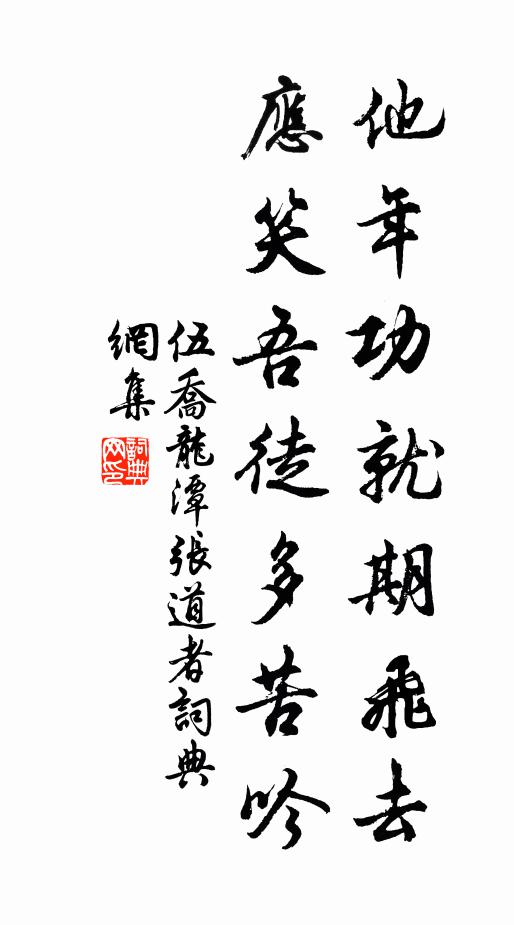 他年功就期飛去
應笑吾徒多苦吟
伍喬龍潭張道者詞典
網集
詞典网印